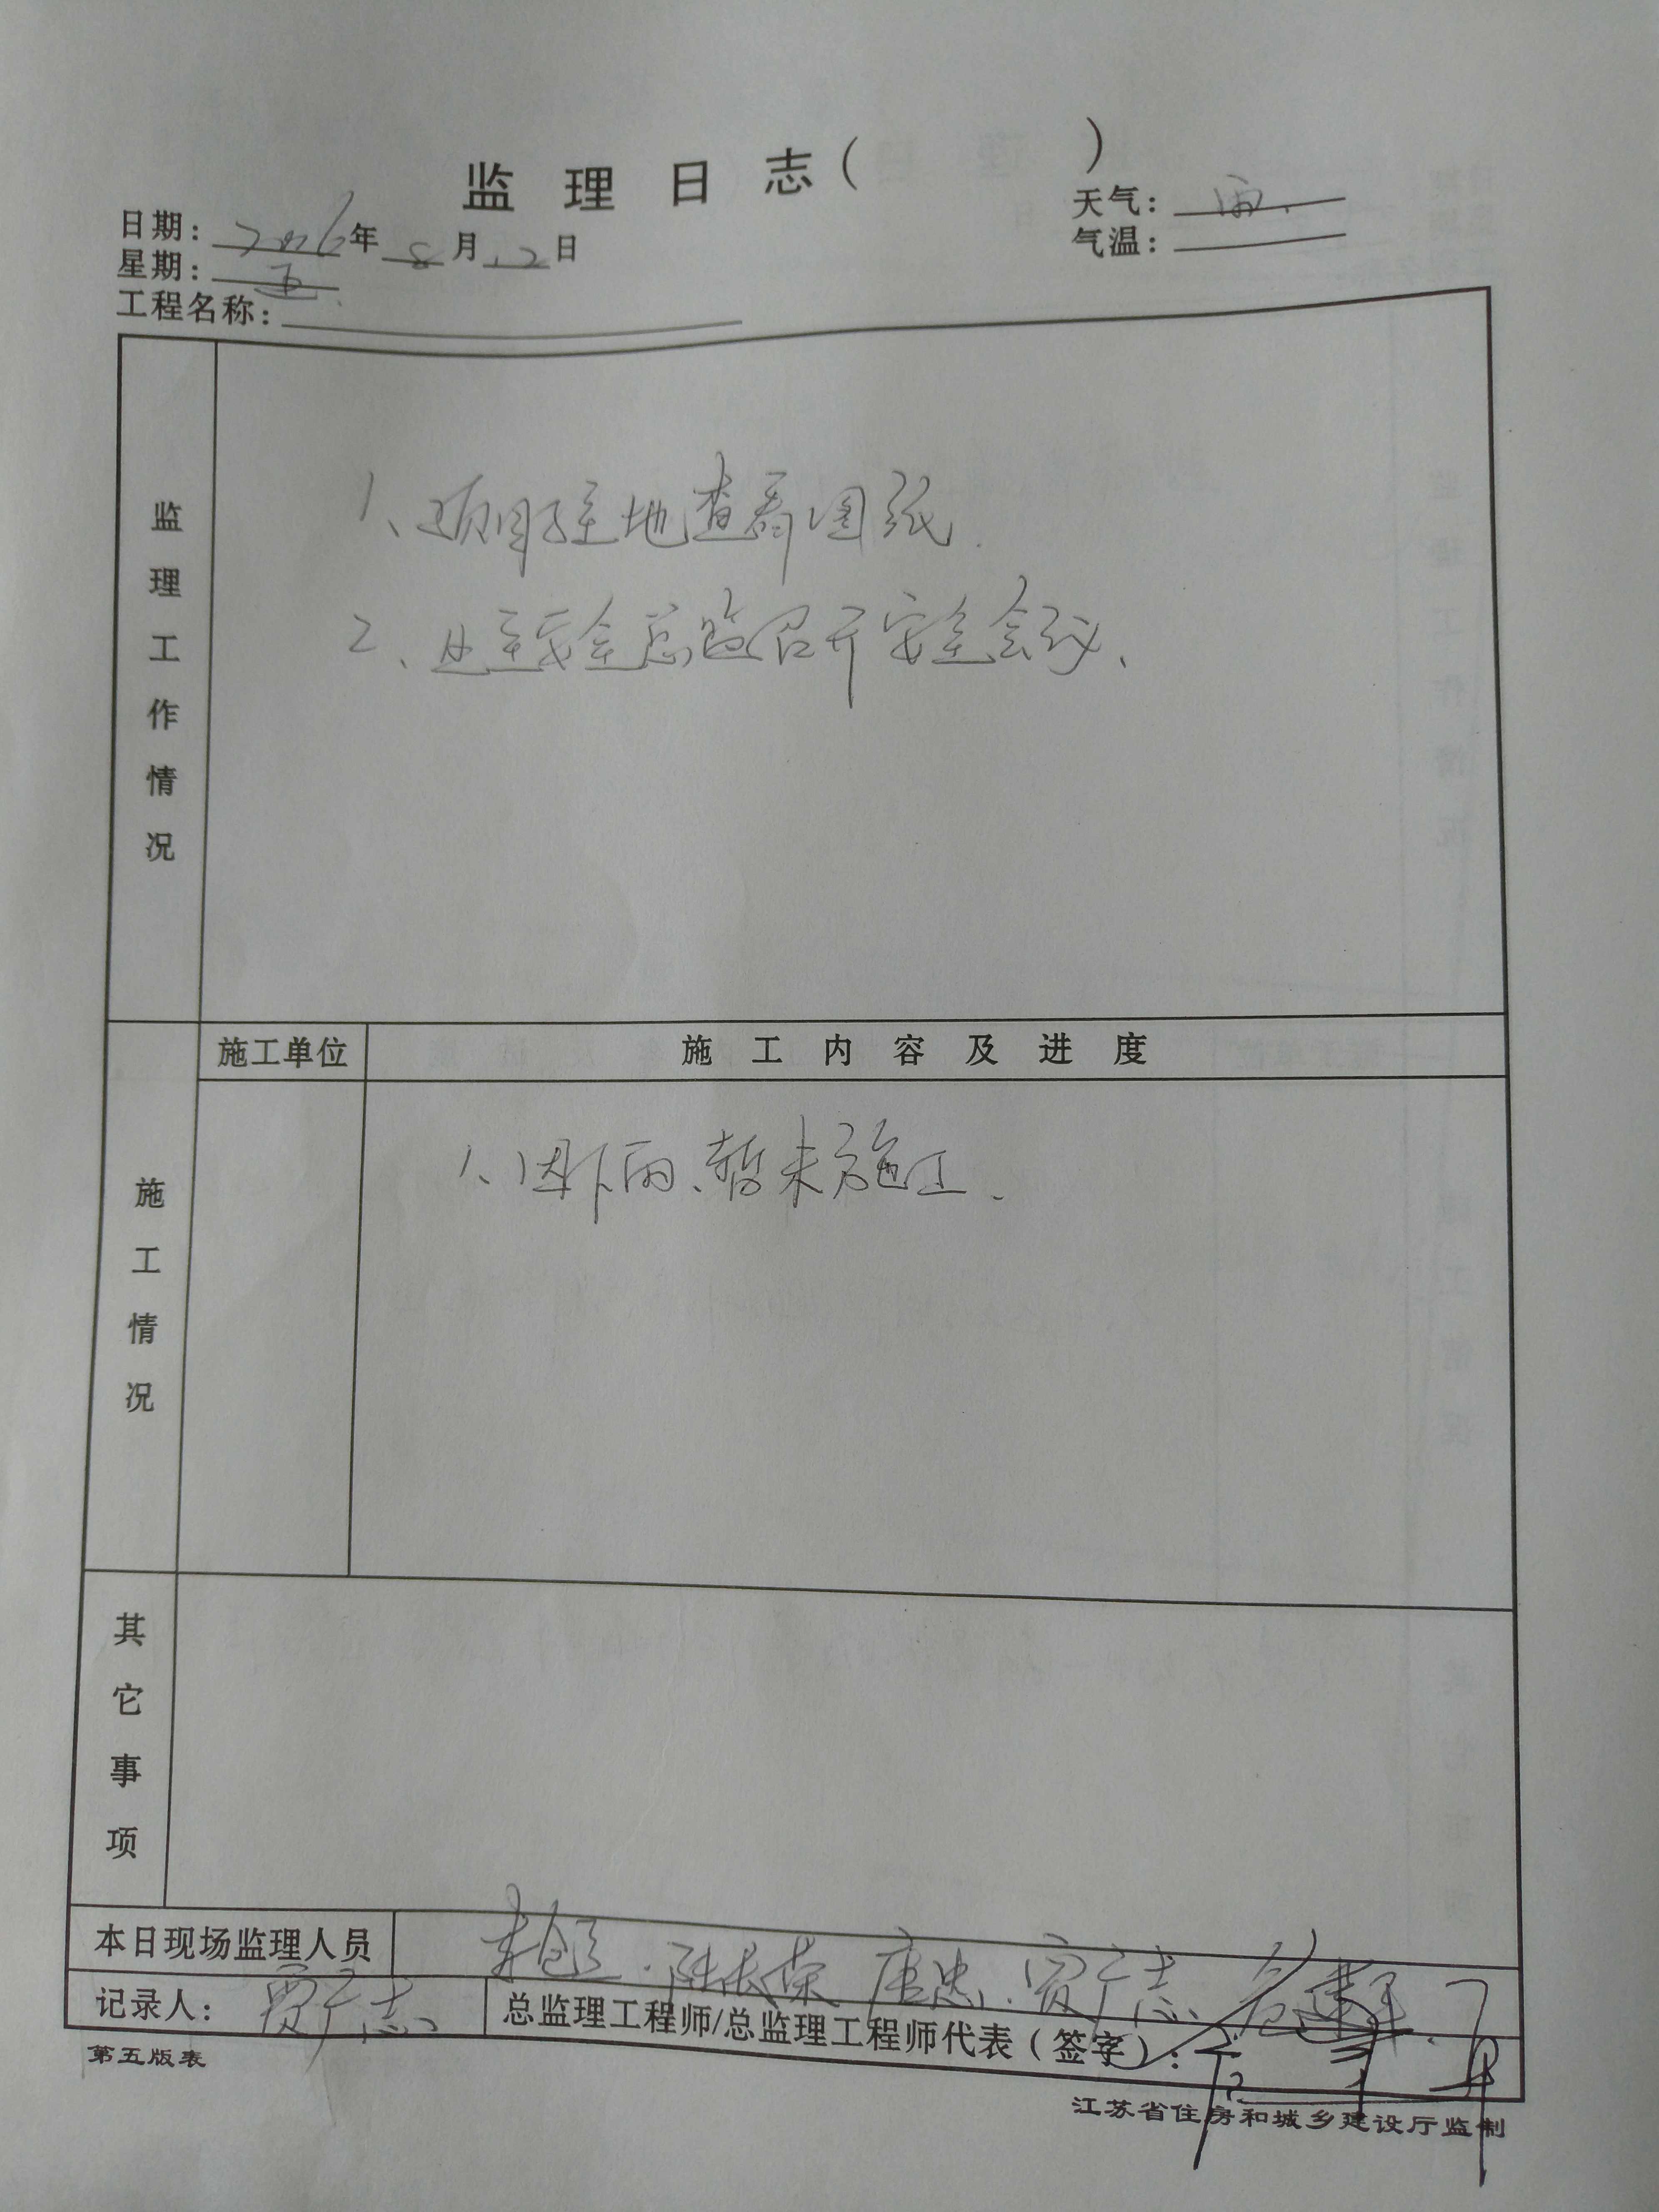 监理日志（ ）
日期：2016年8月12日 天气：雨.
星期：五. 气温：
工程名称：
监理工作情况
1、项目驻地查看图纸.
2、业主安全总监召开安全会议、
施工单位 施工内容及进度
施工情况
1、因下雨、暂未施工.
其它事项
本日现场监理人员 唐忠.贾广志、
记录人：贾广志 总监理工程师/总监理工程师代表（签字）：
第五版表
江苏省住房和城乡建设厅监制